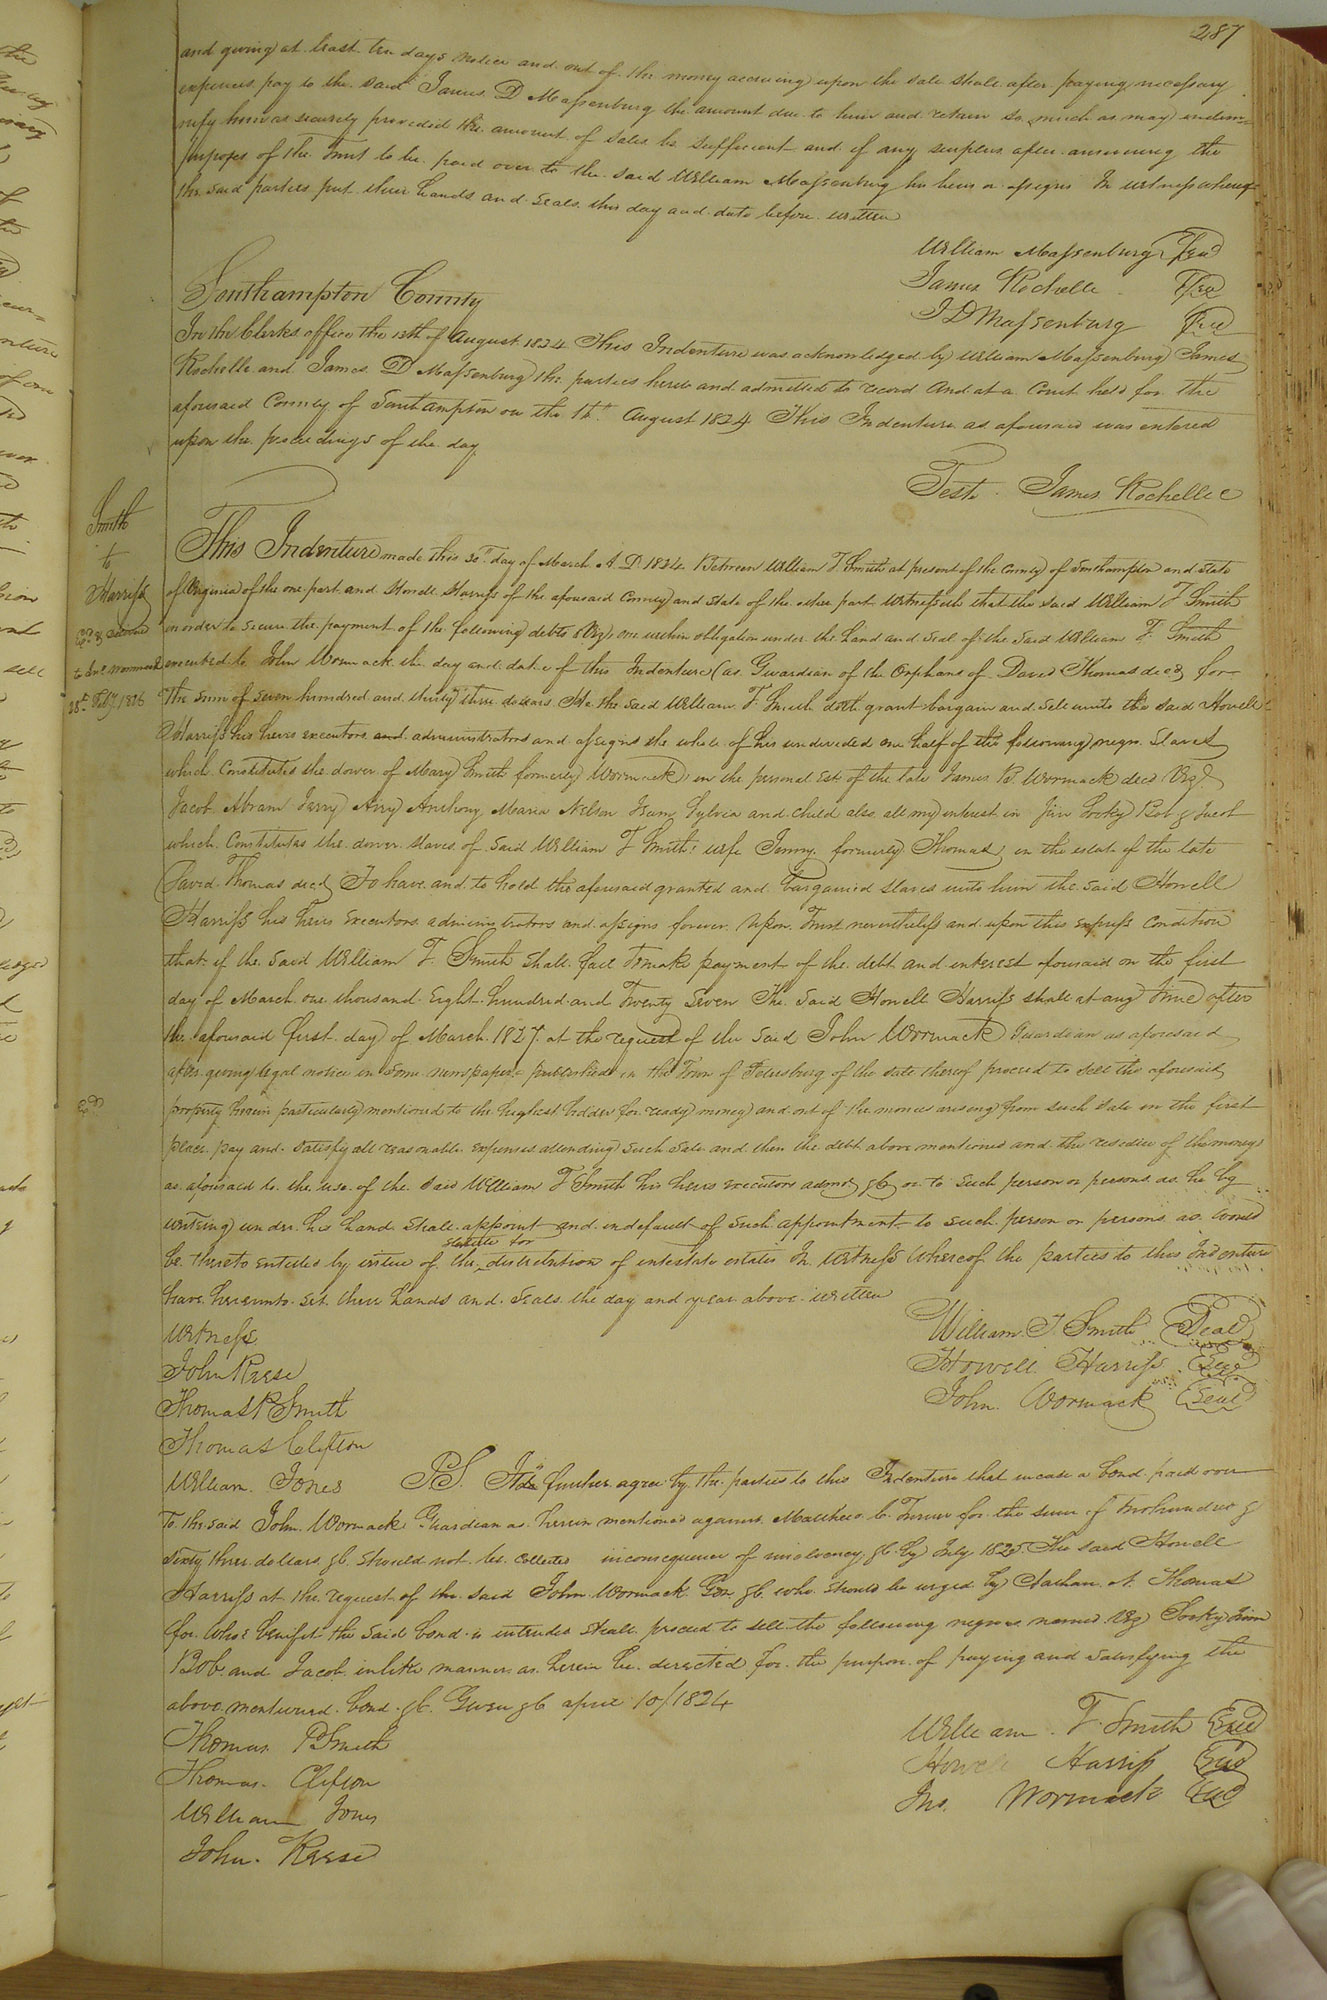 287
and giving at least ten days notice and out of the money accruing upon the sale shall after paying necessary
expences pay to the said James D Massenburg the amount due to him and retain so much as may indem=
nify him as security provided the amount of sales be sufficient and if any surplus after answering the
purposes of the Trust to be paid over to the said William Massenburg his heirs or assigns In witness whereof
the said parties put their hands and seals this day and date before written
William Massenburg Seal
James Rochelle Seal
J D Massenburg Seal
Southampton County
In the Clerks office the 12th of August 1824 This Indenture was acknowledged by William Massenburg James
Rochelle and James D Massenburg the parties hereto and admitted to record And at a Court held for the
aforesaid County of Southampton on the August 1824 This Indenture as aforesaid was entered
upon the proceedings of the day
Teste James Rochelle c
Smith
to
Harriss
to Jno Wormack
Feby 1826
This Indenture made this 30th day of March A. D. 1824 Between William T Smith at present of the County of Southampton and State
of Virginia of the one part and Howell Harriss of the aforesaid County and State of the other part Witnesseth that the said William T Smith
in order to secure the payment of the following debts Viz, one written obligation under the hand and seal of the said William T. Smith
executed to John Wormack the day and date of this Indenture (as Guardian of the Orphans of David Thomas decd for
the sum of seven hundred and thirty three dollars He the said William T Smith doth grant bargain and sell unto the said Howell
Harriss his heirs executors and administrators and assigns the whole of his undivided one half of the following negro Slaves
which Constitutes the dower of Mary Smith formerly Wormack in the personal Est of the late James B. Wormack decd Viz
Jacob Abram Jerry Avey Anthony Maria Nelson Sylvia and child also all my interest in Jim Socky Bob & Jacob
which Constitutes the dower slaves of said William T Smiths wife Jenny formerly Thomas in the estate of the late
David Thomas decd To have and to hold the aforesaid granted and bargained slaves unto him the said Howell
Harriss his heirs executors administrators and assigns forever Upon Trust nevertheless and upon this express Condition
that if the said William T. Smith shall fail to make payment of the debt and interest aforesaid on the first
day of March one thousand Eight hundred and Twenty Seven The said Howell Harriss shall at any time after
the aforesaid first day of March 1827 at the request of the said John Wormack Guardian as aforesaid
after giving legal notice in some newspaper published in the Town of Petersburg of the date thereof proceed to sell the aforesaid
property herein particularly mentioned to the highest bidder for ready money and out of the monies arising from such sale in the first
place pay and satisfy all reasonable expenses attending such sale and then the debt above mentioned and the residue of the money
as aforesaid to the use of the said William T Smith his heirs executors admors &c or to such person or persons as he by
writing under his hand shall appoint and in default of such appointment to such person or persons as would
statute for
be thereto entitled by virtue of the distribution of intestate estates In Witness Whereof the parties to this Indenture
have hereunto set their hands and seals the day and year above written
Witness
William. T. Smith Seal
John Reese
Howell Harriss Seal
Thomas P Smith
John. Wormack Seal
Thomas Clifton
William Jones
P.S. It is further agree by the parties to this Indenture that in case a bond paid over
To the said John Wormack Guardian as herein mentioned against Matthew C. Turner for the sum of two hundred &
sixty three dollars &c should not be Collected inconsequence of insolvency &c by July 1825 The said Howell
Harriss at the request of the said John Wormack Gdn &c who should be urged by Nathan A. Thomas
for whose benefit the said bond is intended shall proceed to sell the following negroes named Viz Socky Jim
Bob and Jacob in like manner as herein be directed for the purpose of paying and satisfying the
above mentioned bond &c Given &c april 10/1824
William T. Smith Seal
Thomas P Smith
Howell Harriss Seal
Thomas Clifton
Jno. Wormack Seal
William Jones
John Reese